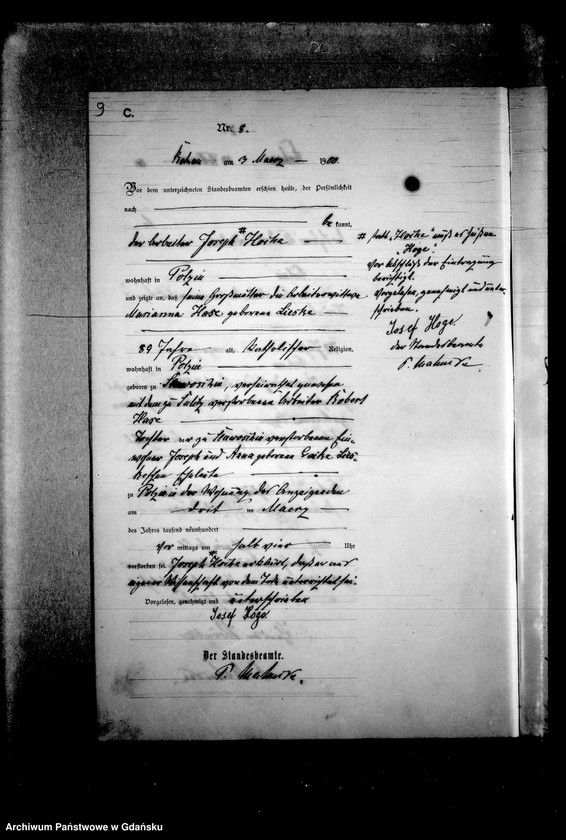 9
C.
Nr. 8.
am 3 Maerz 1900.
Vor dem unterzeichneten Standesbeamten erschien heute, der Persönlichkeit
nach
bekannt,
der Arbeiter Joseph # Hoike
wohnhaft in Polzin
und zeigte an, daß seine Großmutter die Arbeiterwittwe
Marianna Hase geborene Lieske
89 Jahre alt, Katholischer Religion,
wohnhaft in Polzin
geboren zu verheirathet gewesen
mit dem zu verstorbenen Arbeiter Robert
Hase
Tochter der zu verstorbenen Ein-
wohner Joseph und Anna geborene Lies-
keschen Eheleute
zu Polzin in der Wohnung des Anzeigenden
am drit ten Maerz
des Jahres tausend neunhundert
Vor mittags um halb vier Uhr
verstorben sei. Joseph # Hoike erklärt, daß er aus
eigener Wissenschaft von dem Tode unterrichtet sei.
Vorgelesen, genehmigt und unterschrieben
Josef Hoge.
Der Standesbeamte.
# statt „Hoike" muß es heißen
„Hoge"
Vor Abschluß der Eintragung
berichtigt.
Vorgelesen, genehmigt und unter-
schrieben.
Josef Hoge.
der Standesbeamte
Archiwum Państwowe w Gdańsku